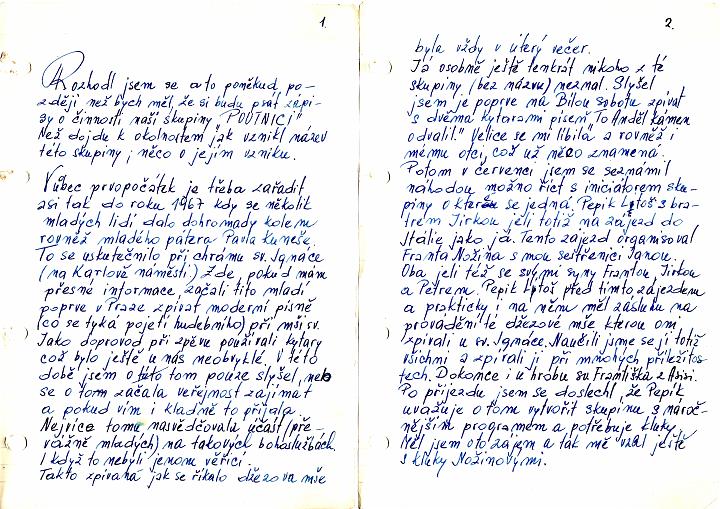 1.
Rozhodl jsem se a to poněkud po-
zději než bych měl, že si budu psát zápi-
sy o činnosti naší skupiny "POUTNÍCI"
Než dojdu k okolnostem, jak vznikl název
této skupiny, něco o jejím vzniku.
Vůbec prvopočátek je třeba zařadit
asi tak do roku 1967 kdy se několik
mladých lidí dalo dohromady kolem
rovněž mladého pátera Pavla Kuneše.
To se uskutečnilo při chrámu sv. Ignáce
(na Karlově náměstí). Zde, pokud mám
přesné informace, začali tito mladí
poprve v Praze zpívat moderní písně
(co se týká pojetí hudebního) při mši sv.
Jako doprovod při zpěvu používali kytary
což bylo ještě u nás neobvyklé. V této
době jsem o tom pouze slyšel, neb
se o tom začala veřejnost zajímat
a pokud vím i kladně to přijala.
Nejvíce tomu nasvědčovala účast (pře-
vážně mladých) na takových bohoslužbách.
I když to nebyli jenom věřící.
Takto zpívaná jak se říkalo džezova mše
2.
byla vždy v úterý večer.
Já osobně ještě tenkrát nikoho z té
skupiny (bez názvu) neznal. Slyšel
jsem je poprve na Bílou sobotu zpívat
s dvěma kytarami píseň "To Anděl kámen
odvalil." Velice se mi líbila a rovněž i
mému otci, což už něco znamená.
Potom v červenci jsem se seznámil
náhodou možno říct s iniciátorem sku-
piny o kterou se jedná. Pepík Lytoš s bra-
trem Jirkou jeli totiž na zájezd do
Itálie jako já. Tento zájezd organisoval
Franta Nožina s mou sestřenicí Janou.
Oba jeli též se svými syny Frantou, Jirkou
a Petrem. Pepík Lytoš před tímto zájezdem
a prakticky i na něm měl zásluhu na
provádění té džezové mše kterou oni
zpívali u sv. Ignáce. Naučili jsme se jí totiž
všichni a zpívali jí při mnohých příležitos-
tech. Dokonce i u hrobu sv. Františka z Asisi.
Po příjezdu jsem se doslechl, že Pepík
uvažuje o tom vytvořit skupinu s nároč-
nějším programem a potřebuje kluky.
Měl jsem o to zájem a tak mě vzal ještě
s kluky Nožinovými.